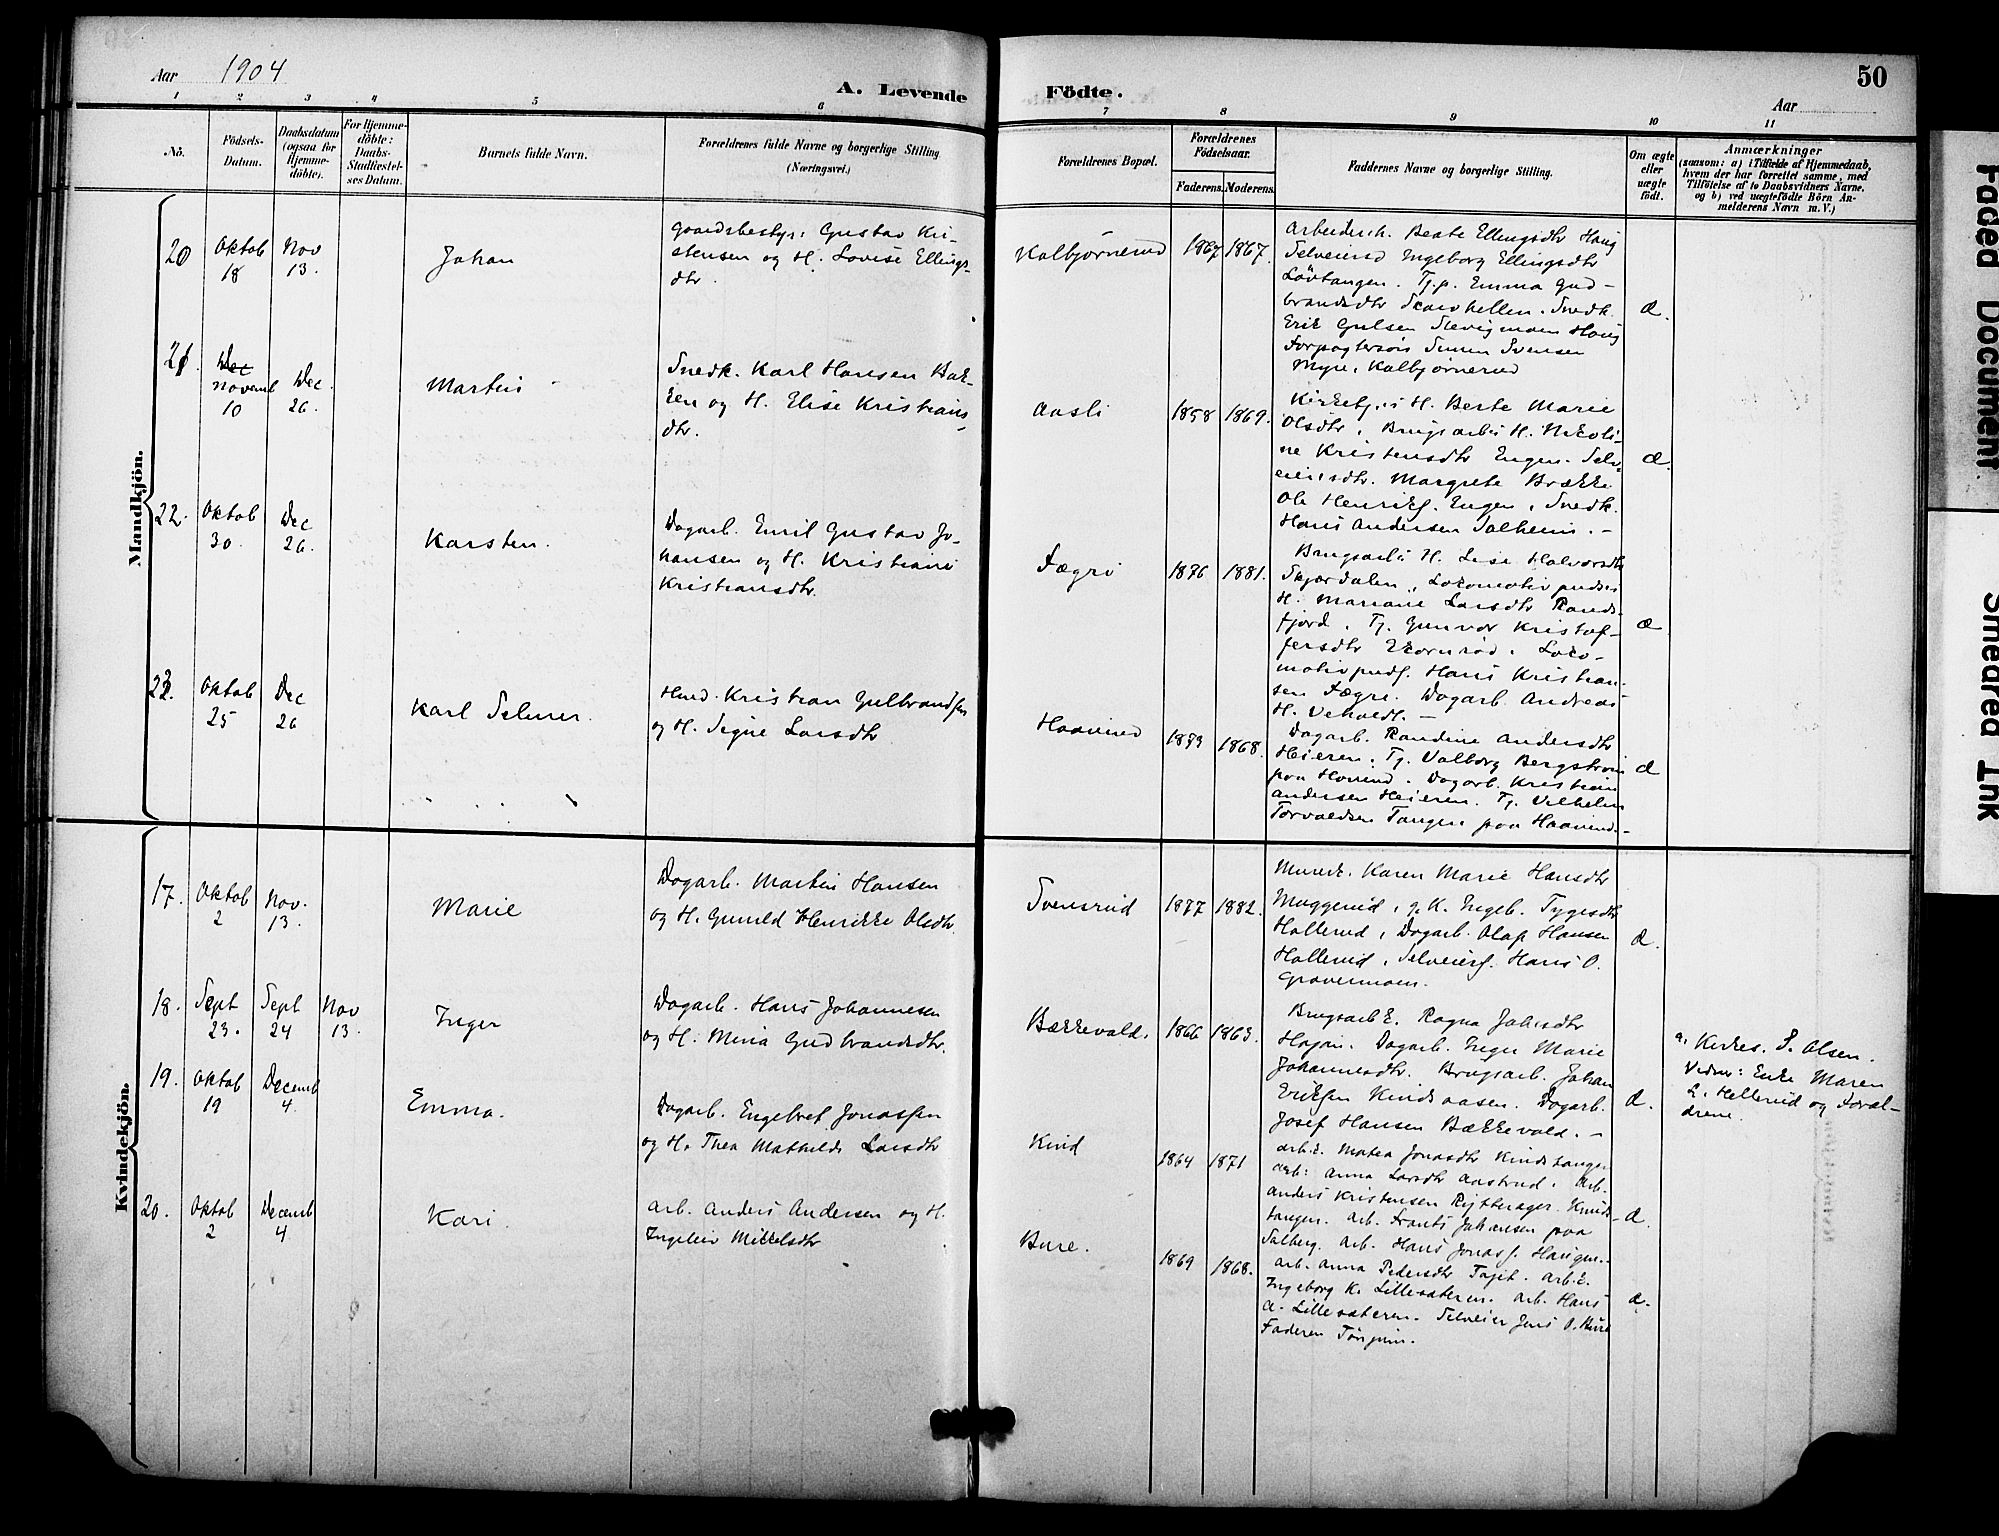 Aar 1904
A. Levende Födte.
50
Aar
1 2 3 4 5 6 7 8 9 10 11
No.
Födsels-
Datum.
Daabsdatum
(ogsaa for
Hjemme-
döbte).
For Hjemme-
döbte:
Daabs-
Stadfæstel-
ses Datum.
Barnets fulde Navn.
Forældrenes fulde Navne og borgerlige Stilling
(Næringsvei.)
Forældrenes Bopæl.
Forældrenes
Födselsaar.
Faderens. Moderens.
Faddernes Navne og borgerlige Stilling.
Om ægte
eller
uægte
födt.
Anmærkninger
(saasom: a) i Tilfælde af Hjemmedaab,
hvem der har forrettet samme, med
Tilföielse af to Daabsvidners Navne,
og b) ved uægtefödte Börn An-
melderens Navn m. V.)
Mandkjön.
20
Oktob
18
Nov
13.
Johan
Gaardsbestyr. Gustav Kri-
stensen og H. Lovise Ellings-
dtr.
Kalbjørnerud
1867 1867.
Arbeidersk. Beate Ellingsdtr Haug
Selveiersd Ingeborg Ellingsdtr
Løvtangen. Tj.p. Emma Gud-
brandsdtr Skarvhellen. Snedk.
Erik Gulsen Haug
Forpagtersøn Simen Svensen
Myre, Kalbjørnerud
æ.
21.
Dec
Novemb
10
Dec.
26.
Martin
Snedk. Karl Hansen Bak-
ken og H. Elise Kristians
dtr.
Aasli
1858 1869.
H. Berte Marie
Olsdtr, Brugsarb. H. Nikoli-
ne Kristensdtr Engen. Selv-
eiersdtr. Margrete Brække
Ole Henriks. Engen, Snedk.
Hans Andersen Solheim. –
æ.
22.
Oktob
30.
Dec
26.
Karsten.
Dagarb. Emil Gustav Jo-
hansen og H. Kristiane
Kristiansdtr.
Fægri
1876 1881.
Brugsarb. H. Lise Halvorsdtr
Skjærdalen, Lokomotivpudser
H. Mariane Larsdtr Rands-
fjord, Tj. Gunvor Kristof-
fersdtr Ekornrød. Loko-
motivpuds. Hans Kristian-
sen Fægri. Dagarb. Andreas
H. Veholdt. –
æ
23.
Oktob
25
Dec
26
Karl Selmer.
Husm. Kristian Gulbrandsen
og H. Signe Larsdtr
Haaverud
1873 1868.
Dagarb. Randine Andersdtr
Heieren, Tj. Valborg Bergstrøm
paa Haverud. Dagarb. Kristian
Andersen Heieren. Tj. Vilhelm
Torvaldsen Tangen paa Haaverud. –
æ
Kvindekjön.
17.
Oktob
2
Nov.
13.
Marie
Dagarb. Martin Hansen
og H. Gunild Henrikke Olsdtr.
Svensrud
1877 1882.
Murerk. Karen Marie Hansdtr
Muggerud, g.K. Ingeb. Tygesdtr
Hallerud, Dagarb. Olaf Hansen
Hallerud, Selveiers. Hans O.
Gravermoen.
æ.
18.
Sept
23.
Sept
24
Nov
13.
Inger
Dagarb. Hans Johannesen
og H. Mina Gudbrandsdtr.
Bækkevold.
1866 1863.
Brugsarb K. Ragna Johsdtr
Hagan. Dagarb. Inger Marie
Johannesdtr. Brugsarb. Johan
Eriksen Kindsaasen. Dagarb.
Josef Hansen Bækkevold. –
æ.
a, Kirkes. S. Olsen.
Vidner: Enke Maren
L. Hellerud og Foræl-
drene.
19.
Oktob
19
Decemb
4.
Emma.
Dagarb. Engebret Jonassen
og H. Thea Mathilde Larsdtr
Kind
1864 1871
Arb.k. Matea Jonasdtr Kindstangen
Arb. Anna Larsdtr Aastrud. Arb.
Anders Kristensen Rytterager. Kinds-
tangen. Arb. Frants Johansen paa
Salberg. Arb. Hans Jonas. Haugen.
æ.
20.
Oktob
2
Decemb
4
Kari.
Arb. Anders Andersen og H.
Ingeleiv Mikkelsdtr
Bure.
1869 1868.
Arb. Anna Pedersdtr Arb.k.
Ingeborg K. Lillesæteren. Arb. Hans
A. Lillesæteren. Selveier Jens O. Bure
Faderen
æ.
Faded Document.
Smeared Ink